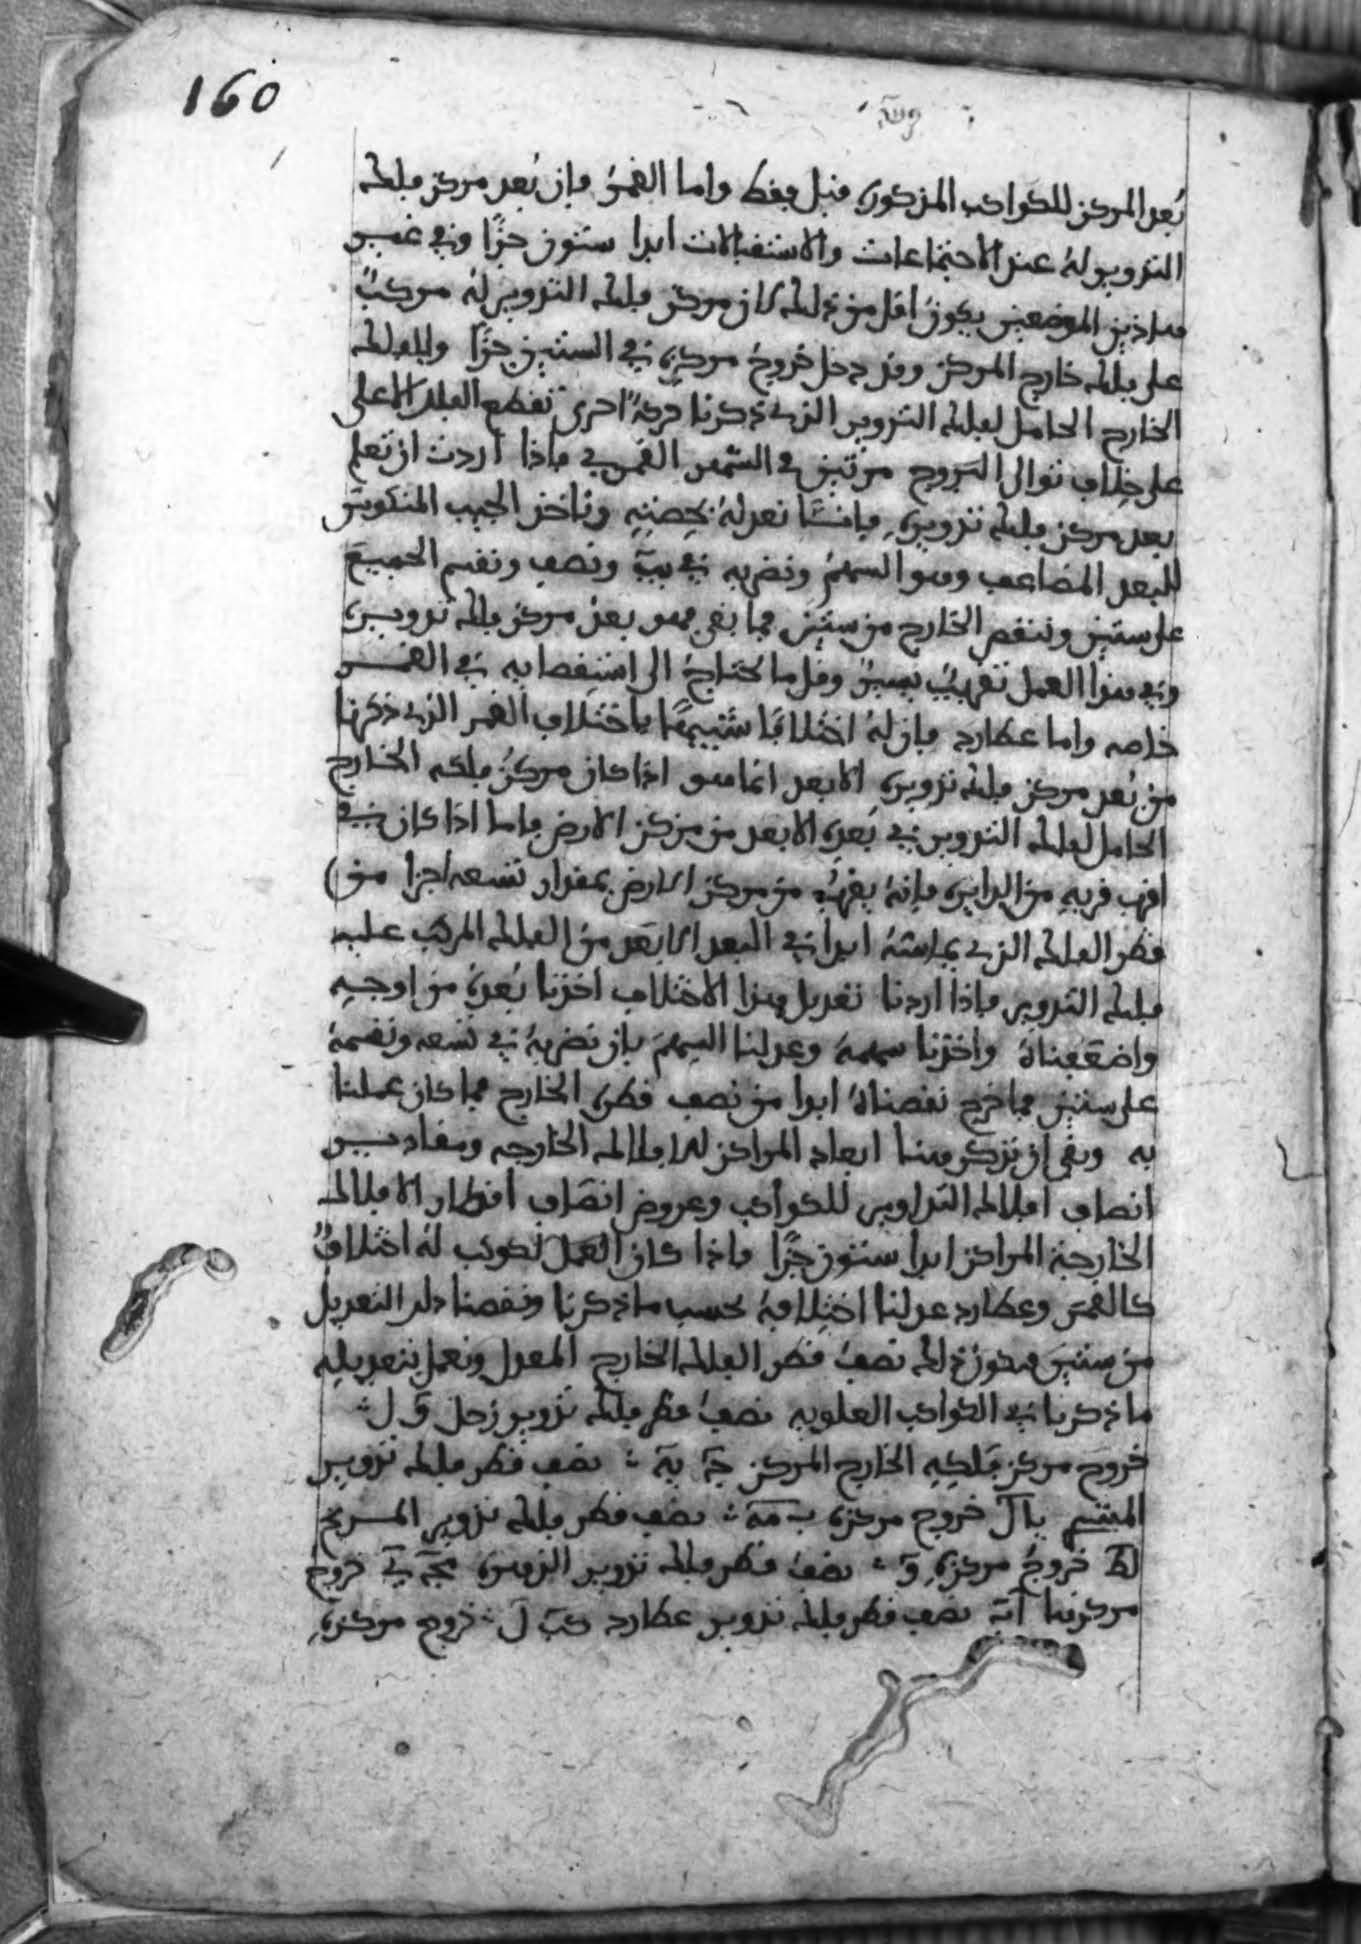 160
بُعد المركز للكواكب المذكورة قبل فقط واما القمر فإن بُعد مركز فلك
التدوير لهُ عند الاجتماعات والاستقبالات ابدا ستون جزًا وفي غير
هاذين الموضعين يكون اقل من ذلك لان مركز فلك التدوير له مركبٌ
على فلك خارج المركز وقد دخل خروج مركزه في الستين جزًا وللفلك
الخارج الحامل لفلك التدوير الذي ذكرنا حركةً اخرى تقطع الفلك الاعلى
على خلاف توالى البروج مرتين في الشهر القمري فاذا أردت ان تعلم
بعد مركز فلك تدويره فانشا تعدله بحصته وتاخذ الجيب المنكوس
للبعد المضاعف وهو السهم وتضربه في يب ونصف وتقسم الجميع
على ستين وتنقص الخارج من ستين فما بقى فهو بعد مركز فلك تدويره
وفي هذا العمل تقريب يسير وقل ما يحتاج الى استقصايه في القمر
خاصه واما عطارد فإن لهُ اختلافًا شبيهًا باختلاف القمر الذي ذكرنا
من بُعد مركز فلك تدويره الابعد انما هو اذا كان مركز فلكه الخارج
الحامل لفلك التدوير في بُعده الابعد من مركز الارض فاما اذا كان في
اقرب قربه من الدايرة فإنهُ يقرب من مركز الارض بمقدار تسعه اجزا من
قطر الفلك الذي يماسهُ ابدا في البعد الابعد من الفلك المركب عليه
فلك التدوير فاذا اردنا تعديل هذا الاختلاف اخذنا بُعدهُ من اوجه
واضعفناهُ واخذنا سهمه وعدلنا السهم بان نضربه في تسعه ونقسمهُ
على ستين فما خرج نقصناهُ ابدا من نصف قطره الخارج فما كان عملنا
به وبقى ان نذكر هنا ابعاد المراكز للافلاك الخارجه ومقادير
انصاف افلاك التداوير للكواكب وعروض انصاف اقطار الافلاك
الخارجة المراكز ابدا ستون جزًا فاذا كان العمل لكوكب لهُ اختلافٌ
كالقمر وعطارد عدلنا اختلافهُ بحسب ما ذكرنا ونقصنا ذلك التعديل
من ستين فيكون ذلك نصفُ قطر الفلك الخارج المعدل ونعمل بتعديله
ما ذكرنا في الكواكب العلويه نصفُ قطر فلك تدوير زحل و ل
خروج مركز فلكه الخارج المركز ج يه نصف قطر فلك تدوير
المشترى يا ل خروج مركزه ب مه نصف قطر فلك تدوير المريخ
لط خروجُ مركزه و نصفُ قطر فلك تدوير الزهره مج ي خروج
مركزها ا يه نصف قطر فلك تدوير عطارد كب ل خروج مركزه